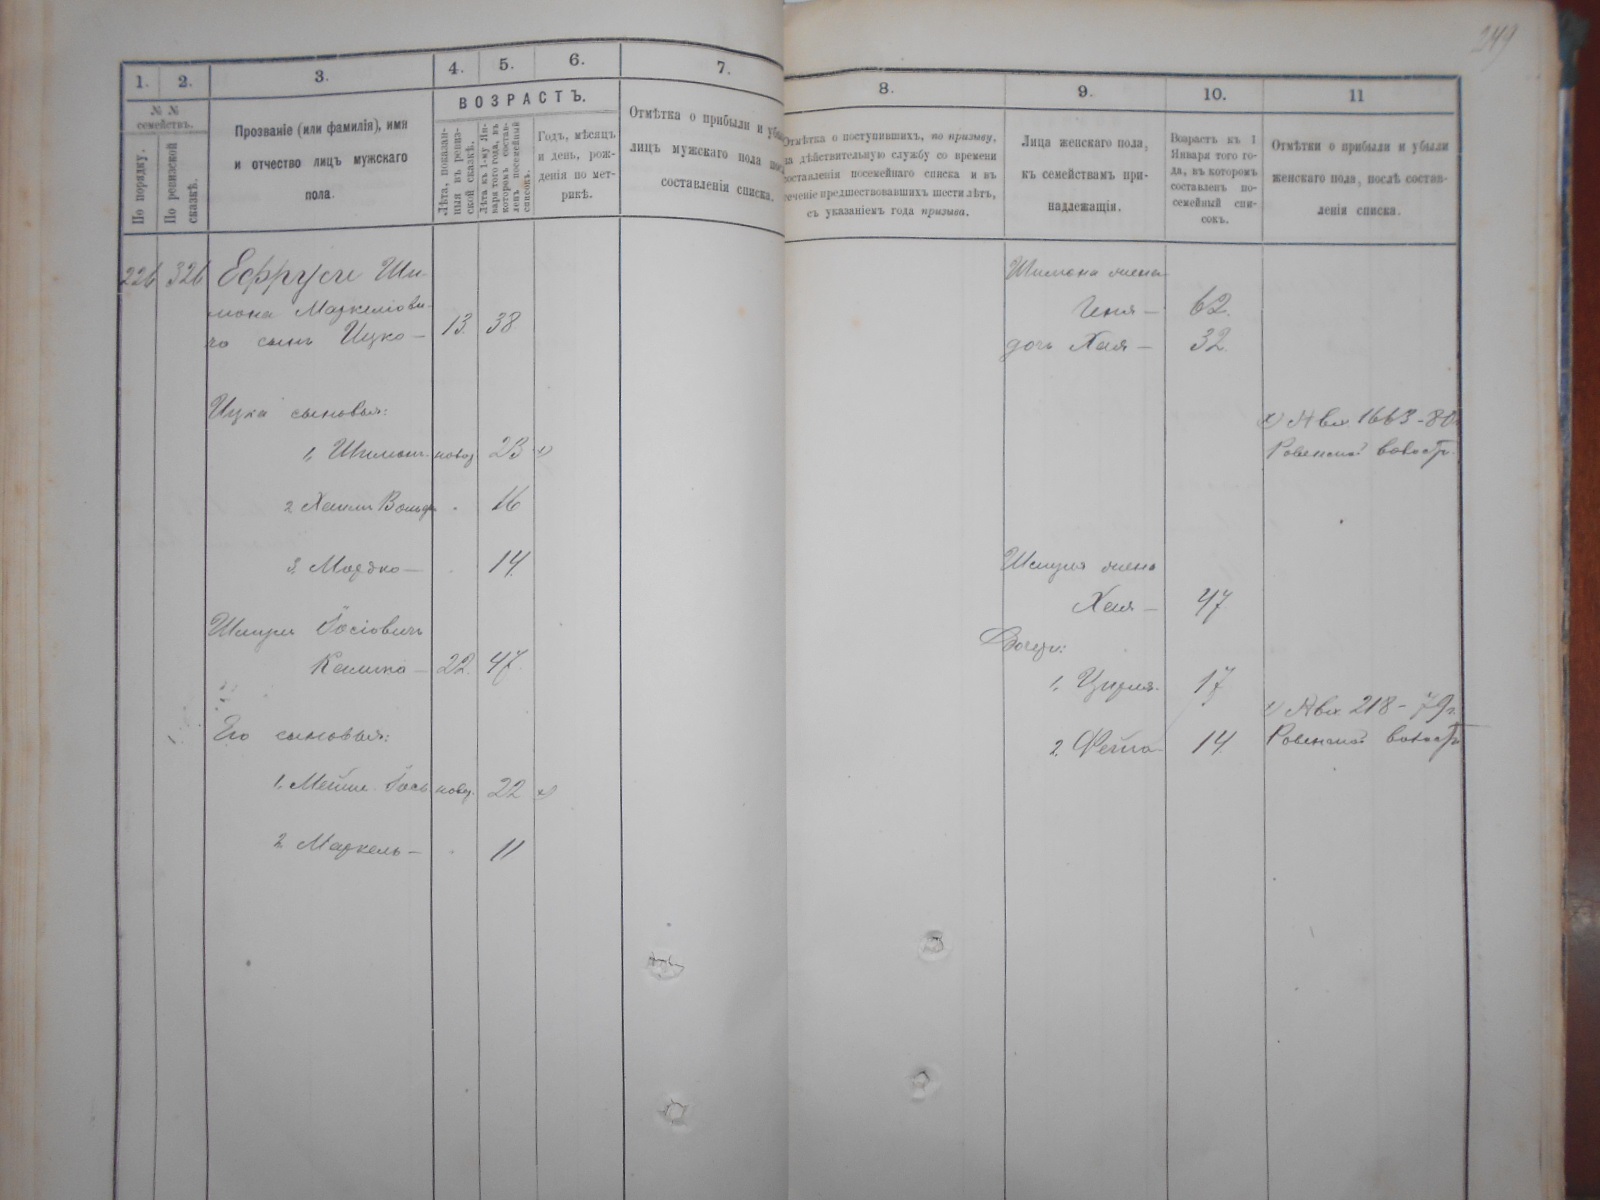 249
1.
2.
3.
4.
5.
6.
7.
8.
9.
10.
11
№ №
семействъ.
По порядку.
По ревизской
сказкѣ.
Прозваніе (или фамилія), имя
и отчество лицъ мужскаго
пола.
ВОЗРАСТЪ.
Лѣта, показан-
ныя въ ревиз-
ской сказкѣ.
Лѣта къ 1-му Ян-
варя того года, въ
которомъ состав-
ленъ посемейный
списокъ.
Годъ, мѣсяцъ
и день, рож-
денія по мет-
рикѣ.
Отмѣтка о прибыли и убыли
лицъ мужскаго пола послѣ
составленія списка.
Отмѣтка о поступившихъ, по призыву,
на дѣйствительную службу со времени
составленія посемейнаго списка и въ
теченіе предшествовавшихъ шести лѣтъ,
съ указаніемъ года призыва.
Лица женскаго пола,
къ семействамъ при-
надлежащія.
Возрастъ къ 1
Января того го-
да, въ которомъ
составленъ по-
семейный спи-
сокъ.
Отмѣтки о прибыли и убыли
женскаго пола, послѣ состав-
ленія списка.
226 326 Ефруси Ши-
мона Маркелови-
ча сынъ Ицко — 13. 38
Шимона жена
Геня — 62.
дочь Хая — 32.
Ицка сыновья:
1, Шимон. новор. 23
Ровенской
2 Вольф 16
3. Мордко — 14.
Шмуля жена
Хая — 47
Шмуля Іосіовичъ
— 22. 47.
Дочери:
1, 17
2, Фейга 14
218 - 79г.
Ровенской
Его сыновья:
1. Іось новор. 22
2. Маркель — 11